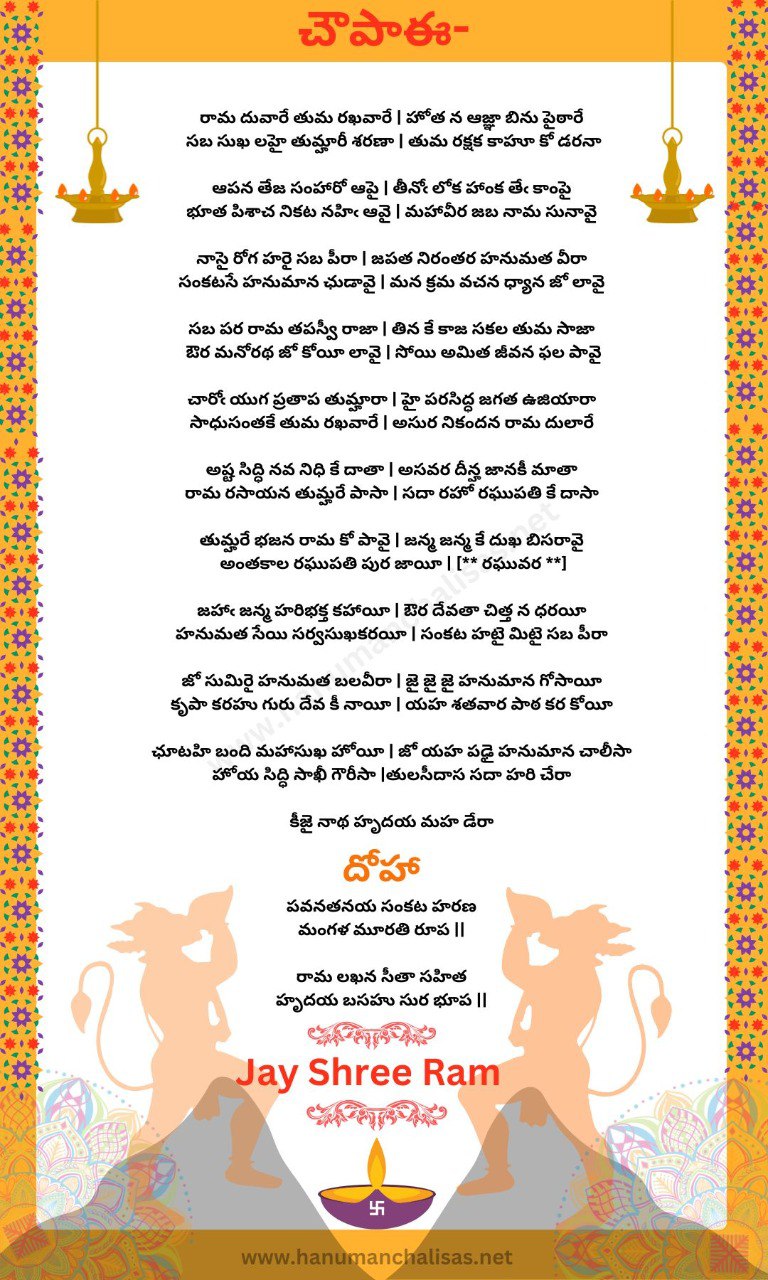 చౌపాఈ-
రామ దువారే తుమ రఖవారే | హోత న ఆజ్ఞా బిను పైఠారే
సబ సుఖ లహై తుమ్హారీ శరణా | తుమ రక్షక కాహూ కో డరనా
ఆపన తేజ సంహారో ఆపై | తీనోఁ లోక హాంక తేఁ కాంపై
భూత పిశాచ నికట నహిఁ ఆవై | మహావీర జబ నామ సునావై
నాసై రోగ హరై సబ పీరా | జపత నిరంతర హనుమత వీరా
సంకటసే హనుమాన ఛుడావై | మన క్రమ వచన ధ్యాన జో లావై
సబ పర రామ తపస్వీ రాజా | తిన కే కాజ సకల తుమ సాజా
ఔర మనోరథ జో కోయీ లావై | సోయి అమిత జీవన ఫల పావై
చారోఁ యుగ ప్రతాప తుమ్హారా | హై పరసిద్ధ జగత ఉజియారా
సాధుసంతకే తుమ రఖవారే | అసుర నికందన రామ దులారే
అష్ట సిద్ధి నవ నిధి కే దాతా | అసవర దీన్హ జానకీ మాతా
రామ రసాయన తుమ్హరే పాసా | సదా రహో రఘుపతి కే దాసా
తుమ్హరే భజన రామ కో పావై | జన్మ జన్మ కే దుఖ బిసరావై
అంతకాల రఘుపతి పుర జాయీ | [** రఘువర **]
జహాఁ జన్మ హరిభక్త కహాయీ | ఔర దేవతా చిత్త న ధరయీ
హనుమత సేయి సర్వసుఖకరయీ | సంకట హటై మిటై సబ పీరా
జో సుమిరై హనుమత బలవీరా | జై జై జై హనుమాన గోసాయీ
కృపా కరహు గురు దేవ కీ నాయీ | యహ శతవార పాఠ కర కోయీ
ఛూటహి బంది మహాసుఖ హోయీ | జో యహ పఢై హనుమాన చాలీసా
హోయ సిద్ధి సాఖీ గౌరీసా |తులసీదాస సదా హరి చేరా
కీజై నాథ హృదయ మహ డేరా
దోహా
పవనతనయ సంకట హరణ
మంగళ మూరతి రూప ||
రామ లఖన సీతా సహిత
హృదయ బసహు సుర భూప ||
Jay Shree Ram
www.hanumanchalisas.net
www.hanumanchalisas.net